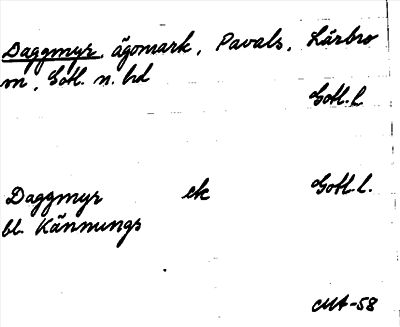 Daggmyr, ägomark, Pavals, Lärbro
sn, Gotl. n. hd
Gotl. l.
Daggmyr ek Gotl. l.
bl. Kännungs
MA-58